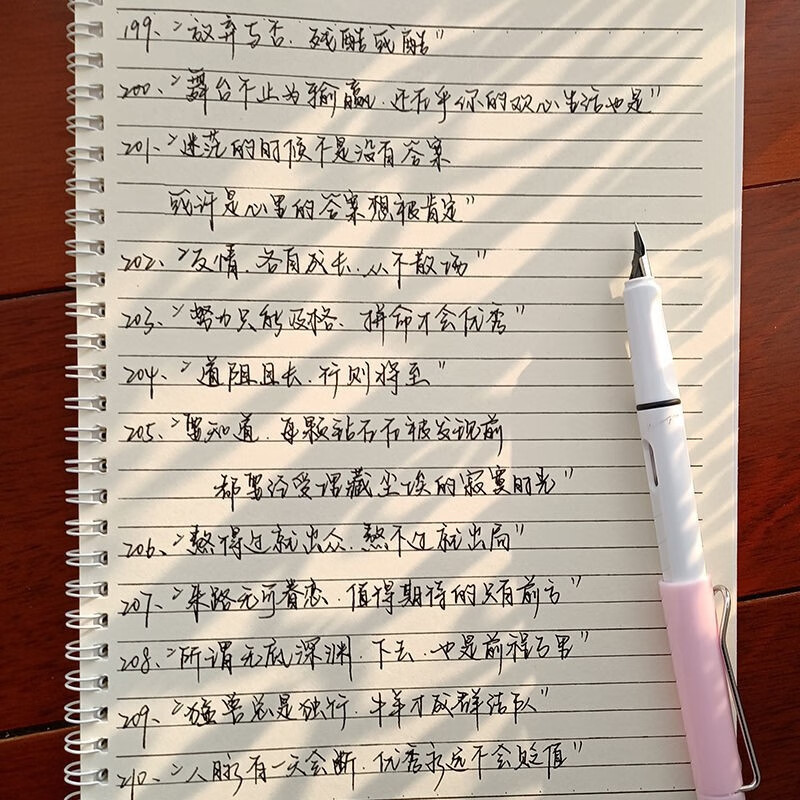 199、"放弃与否、残酷或酷"
200、"舞台不止为输赢、还在乎你的欢心生活也是"
201、"迷茫的时候不是没有答案
或许是心里的答案想被肯定"
202、"友情、各自成长、从不散场"
203、"努力只能及格、拼命才会优秀"
204、"道阻且长、行则将至"
205、"要知道、每颗钻石在被发现前
都要经受埋藏尘埃的寂寞时光"
206、"熬得过就出众、熬不过就出局"
207、"来路无可眷恋、值得期待的只有前方"
208、"所谓无底深渊、下去、也是前程万里"
209、"猛兽总是独行、牛羊才成群结队"
210、"人脉有一天会断、优秀永远不会贬值"